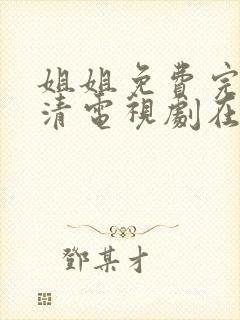 姐姐免費完
清電視劇在
鄧某才